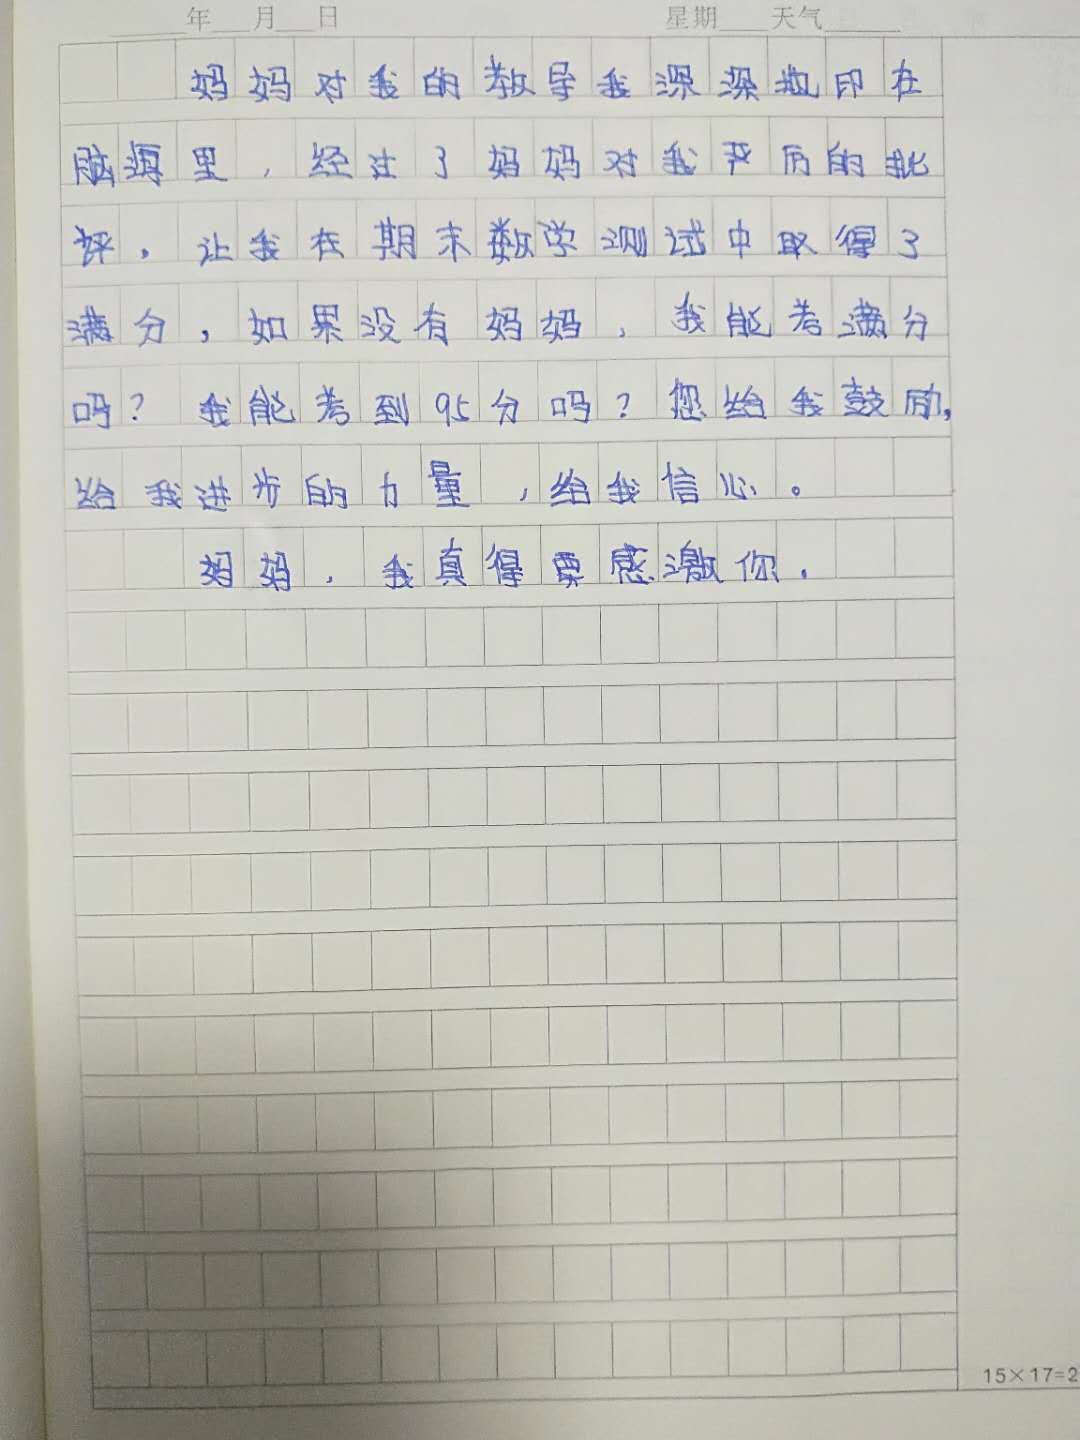 年 月 日 星期 天气
妈妈对我的教导我深深地印在
脑海里，经过了妈妈对我严厉的批
评，让我在期末数学测试中取得了
满分，如果没有妈妈，我能考满分
吗？我能考到95分吗？您给我鼓励，
给我进步的力量，给我信心。
妈妈，我真得要感激你．
15×17=2